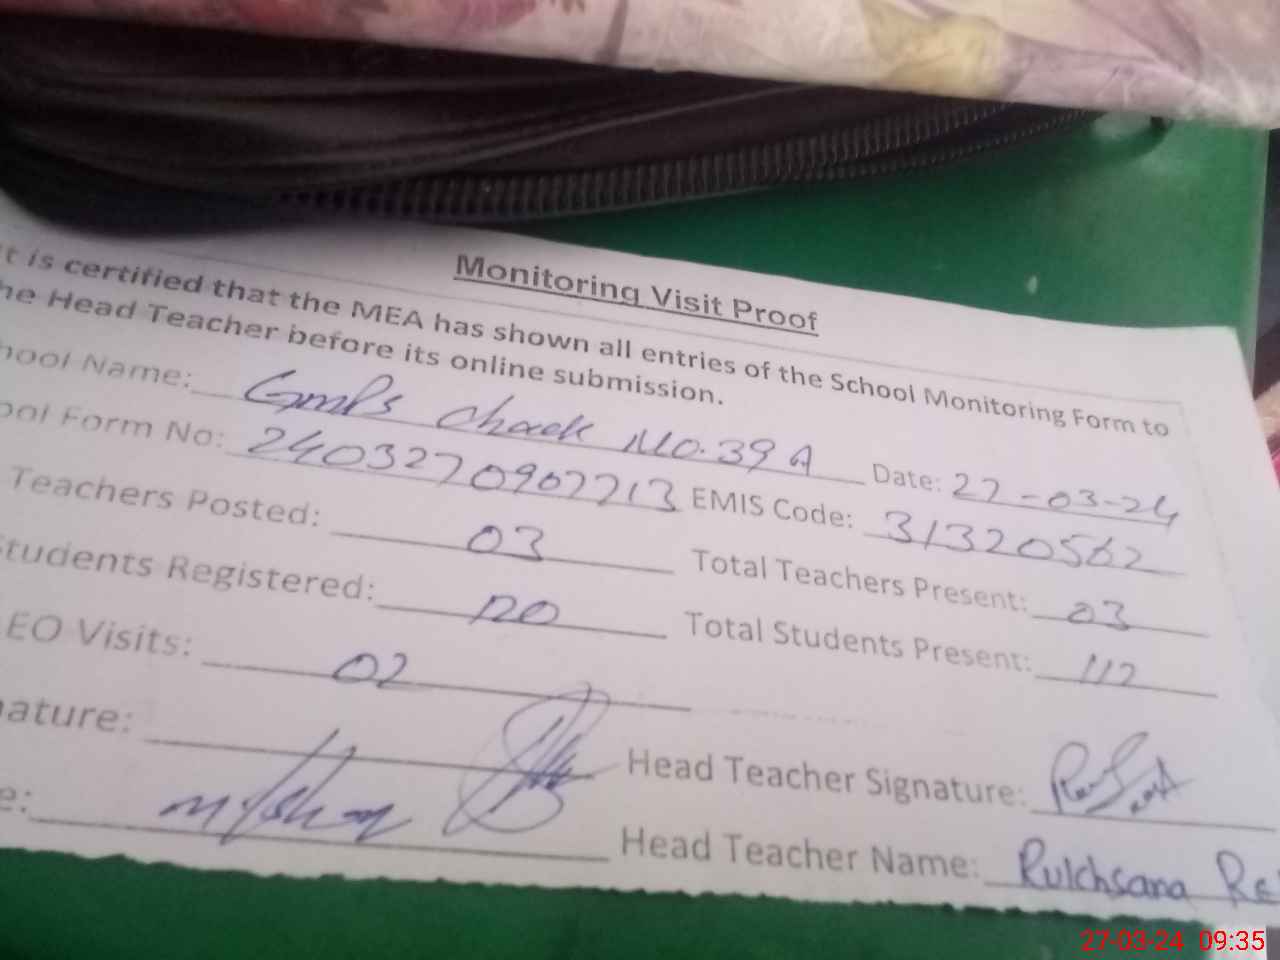 Monitoring Visit Proof
t is certified that the MEA has shown all entries of the School Monitoring Form to
he Head Teacher before its online submission.
hool Name: GMPS Chack No. 39 A Date: 27-03-24
ool Form No: 240327090771 3 EMIS Code: 31320562
Teachers Posted: 03 Total Teachers Present: 03
Students Registered: 120 Total Students Present: 112
EO Visits: 02
nature: Head Teacher Signature:
e: Head Teacher Name: Rukhsana Re
27-03-24 09:35